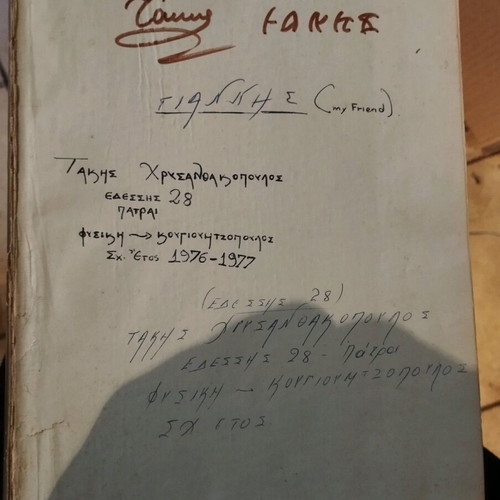 Τάκης ΤΑΚΗΣ
ΓΙΑΝΝΗΣ (my Friend)
ΤΑΚΗΣ ΧΡΥΣΑΝΘΑΚΟΠΟΥΛΟΣ
ΕΔΕΣΣΗΣ 28
ΠΑΤΡΑΙ
ΦΥΣΙΚΗ → ΚΟΥΓΙΟΥΜΤΖΟΠΟΥΛΟΣ
Σχ. Ἔτος 1976-1977
(ΕΔΕΣΣΗΣ 28)
ΤΑΚΗΣ ΧΡΥΣΑΝΘΑΚΟΠΟΥΛΟΣ
ΕΔΕΣΣΗΣ 28 - Πάτραι
ΦΥΣΙΚΗ → ΚΟΥΓΙΟΥΜΤΖΟΠΟΥΛΟΣ
ΣΧ ΕΤΟΣ